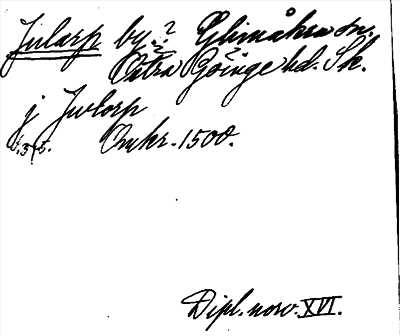 Jularp by? Glimåkra sn.
Östra Göinge hd. Sk.
j Jwlorp
s. 35. Omkr. 1500.
Dipl. norv. XVI.